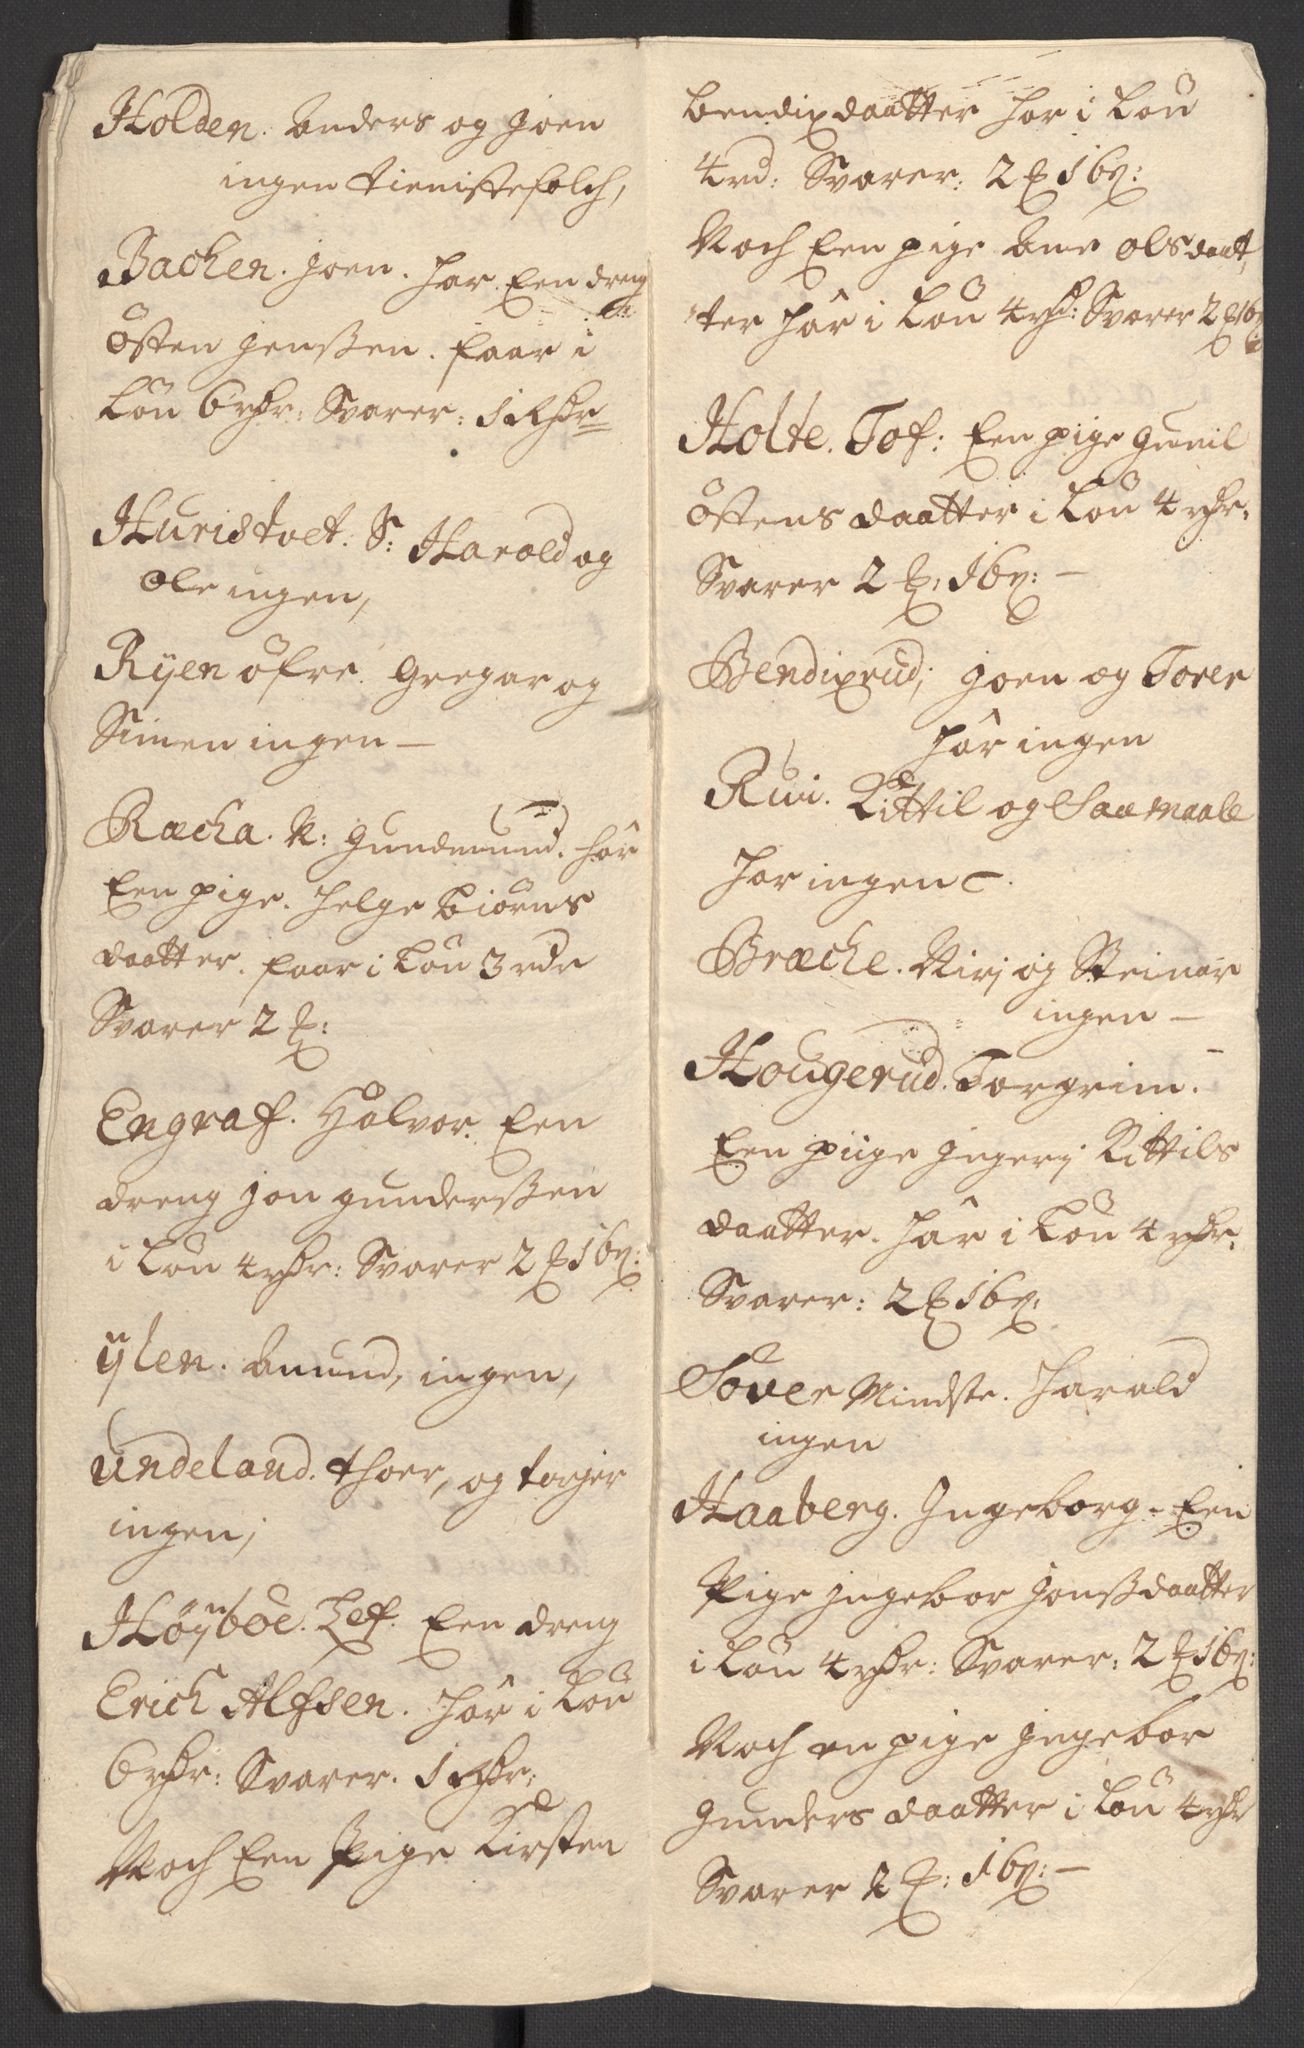 Holden. Anders og Joen
ingen tienistefolch,
Bachen. Joen. har Een dreng
Østen Jenßen. faar i
Lön 6 rdr: Svarer: 1 Rdr
Huristvet. S: Harold og
Ole ingen,
Ryen øfre. Gregar og
Simen ingen —
Ræcha. N: Gundmund. har
Een pige. Helge Biørns
daatter. faar i Lön 3 rdr
Svarer 2 ꝶ:
Engraf. Halvor. Een
dreng Jon gunderßen
i Lön 4 rdr: Svarer 2 ꝶ 16 β:
ÿlen. Amund, ingen,
Undeland. Thoer, og torjer
ingen;
Høyböe. Lef. Een dreng
Erich Alfsen. har i Lön
6 rdr: Svarer. 1 Rdr;
Noch Een Pige Kirsten
bendixdaatter har i Lön
4 rd: Svarer: 2 ꝶ 16 β:
Noch Een pige Ane Olsdaat
ter har i Lön 4 rd: Svarer 2 ꝶ 16 β
Holte. Tof: Een pige Gunil
Østens daatter i Lön 4 rdr.
Svarer 2 ꝶ: 16 β: —
Bendixrud; Joen og Torer
har ingen
Rui. Kittil og Saamaale
har ingen —.
Bræche. Nirj og Steinar
ingen —
Hougerud. Torgrim.
Een piige Ingerj Kittils
daatter. har i Lön 4 rdr.
Svarer: 2 ꝶ 16 β:
Söver Mindste. Harald
ingen
Haaberg. Ingeborg - Een
Pige Ingebor Jonßdaatter
i Lön 4 rdr: Svarer: 2 ꝶ 16 β:
Noch en pige Ingebor
Gunders daatter i Lön 4 rdr
Svarer 2 ꝶ: 16 β: —